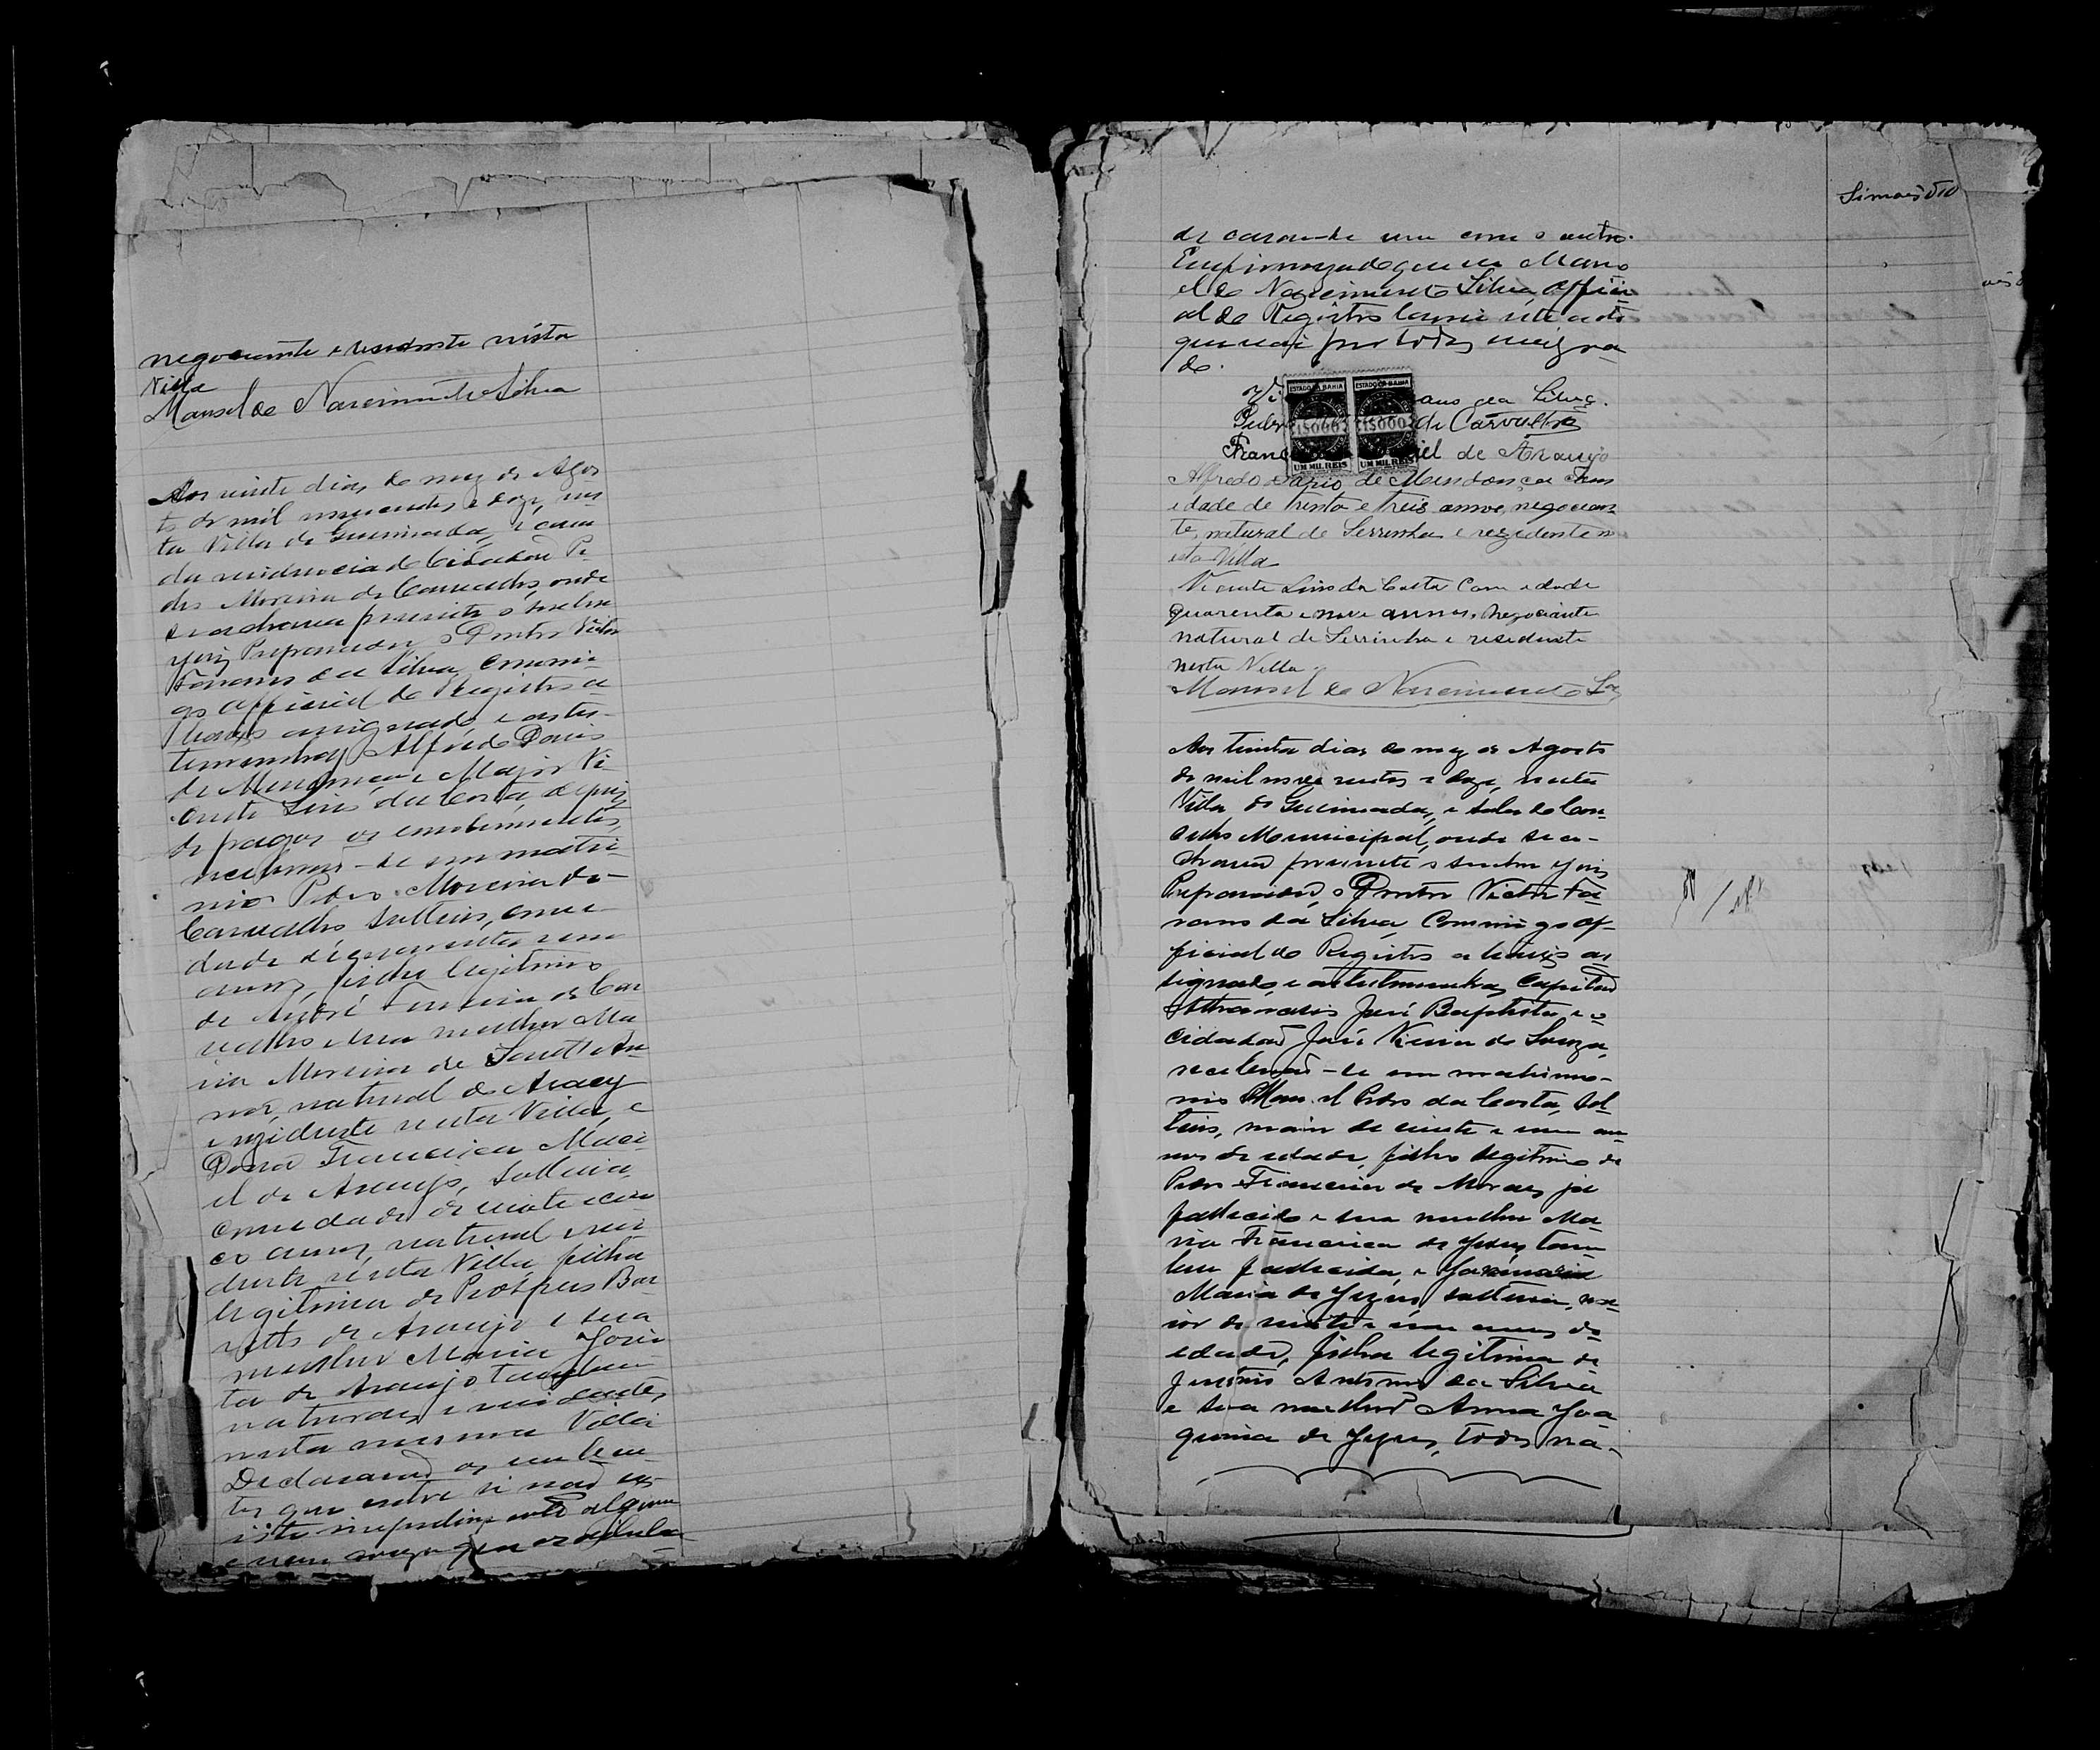 negociante e residente nésta
Villa
Manoel do Nascimento Silva
Aos vinte dias do mez de Agos
to de mil novecentos e doze, nes
ta Villa de Queimadas, e casa
da residencia do Cidadão Pe
dro Moreira de Carvalho, onde
se achava presente o senhor
Juiz Preparador o Doutor Victor
Fararns da Silva, Commi
go official do Registro a
baixo assignado, e as tes-
temunhas Alfredo Dario
de Mendonça e Major Vi
cente Lins da Costa, depois
de pagos os emolumentos,
receberam-se em matri
monio Pedro Moreira de
Carvalho solteiro, com e
dade de quarenta e um
annos, filho legitimo
de André Ferreira de Car
valho e sua mulher Ma
ria Moreira de Sant'An
na, natural do Aracy
e rezidente nesta Villa, e
Dona Francisca Maci
el de Araujo, solteira,
com edade de vinte e cin
co annos, natural e resi
dente nesta Villa, filha
legitima de Prospero Bar
retto de Araujo e sua
mulher Maria José
ta de Araujo tambem
naturaes e residentes
nesta mesma Villa
Declararão os nuben
tes que entre si não ex
iste impedimento algum
e nem cauza que os
Simões 510
de casar-se um com o outro.
Em firmeza do que eu Mano
el do Nascimento Silva, Offici
al do Registro lavrei este acto
que vai por todos assigna
do.
ESTADO DA BAHIA ESTADO DA BAHIA
1$000 1$000
UM MIL REIS UM MIL REIS
Vi ans da Silva.
Pedro de Carvalho
Franc iel de Araujo
Alfredo Dario de Mendonça com
idade de trinta e treis annos, negocian
te, natural de Serrinha e rezidente n
esta Villa
Vicente Lins da Costa Com edade
quarenta e nove annos, negociante
natural de Serrinha e residente
nesta Villa.
Manoel do Nascimento Sa
Aos trinta dias do mez de Agosto
de mil novecentos e doze, nesta
Villa de Queimadas, e sala do Con
selho Municipal, onde se a-
chava presente o senhor Juiz
Preparador, o Doutor Victor Fa
rarns da Silva Commigo of-
ficial do Registro abaixo as
signado e as testemunhas Capitão
José Baptista e o
cidadão José Vieira de Souza,
receberão-se em matrimo-
nio Manoel Pedro da Costa, sol
teiro, maior de vinte e um an
nos de edade, filho legitimo de
Pedro Francisco de Moraes já
fallecido e sua mulher Ma
ria Francisca de Jesus tam
bem fallecida, e Januaria
Maria de Jezus, solteira, ma
ior de vinte e um annos de
edade, filha legitima de
Antonio da Silva
e sua mulher Anna Joa
quina de Jezus, todos na-